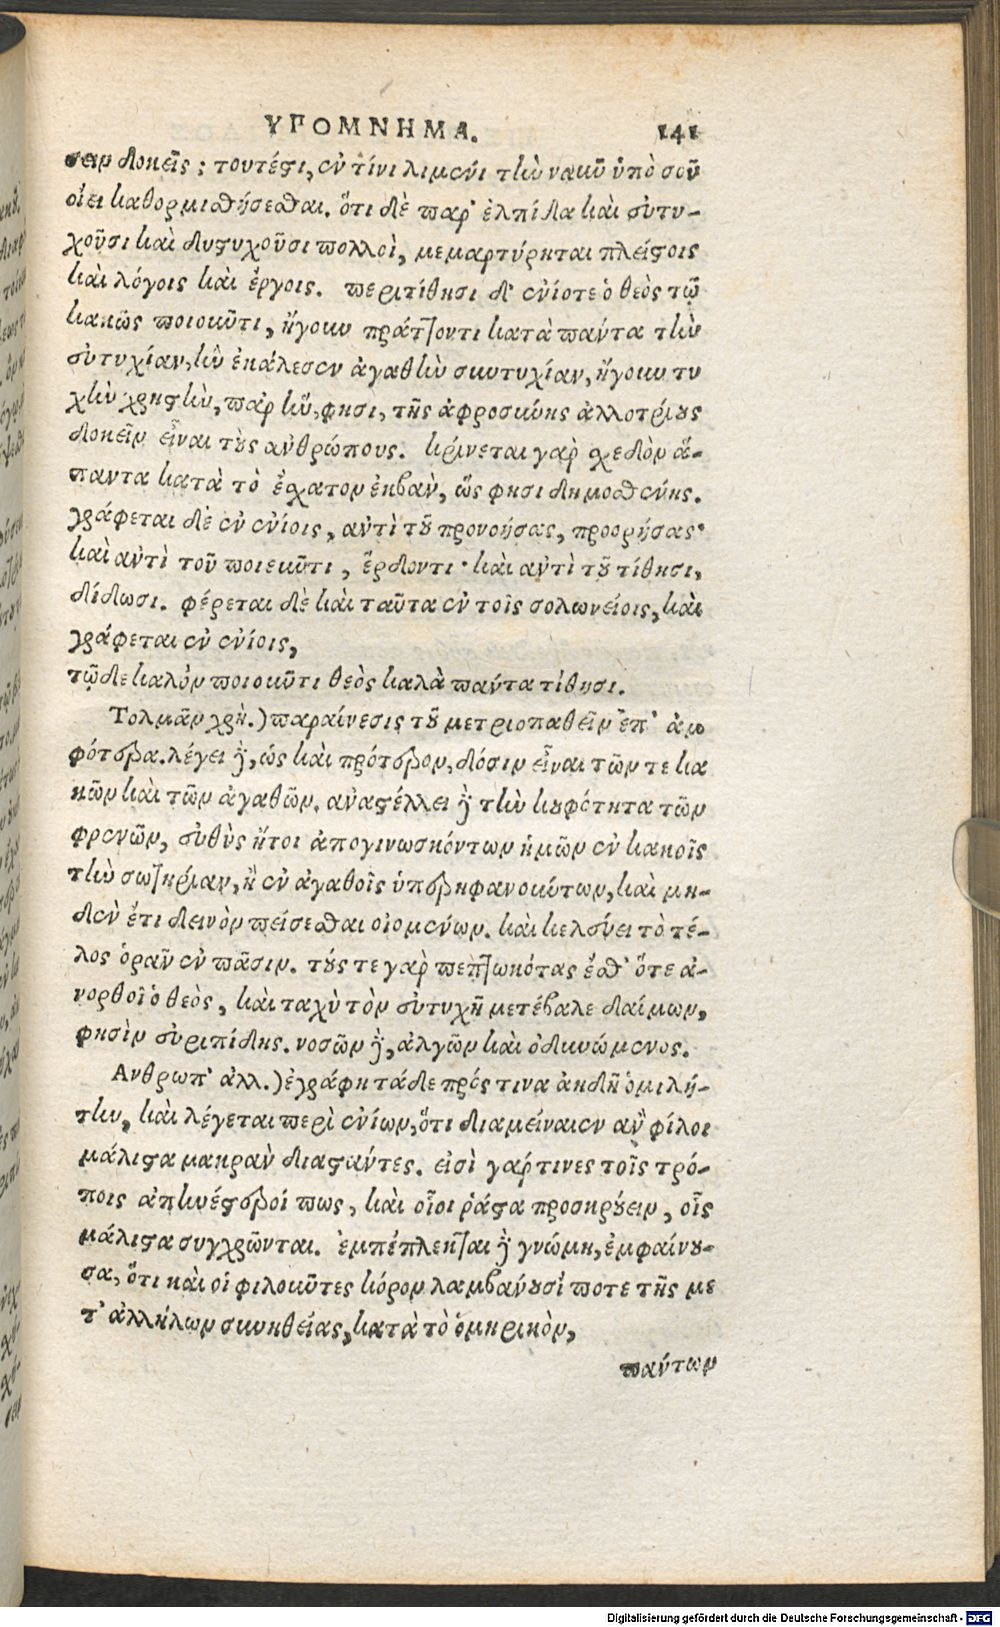 ΥΠΟΜΝΗΜΑ. 141
σειν δοκεῖς; τουτέστι, ἐν τίνι λιμένι τὴν ναῦν ὑπὸ σοῦ
οἴει καθορμισθήσεσθαι. ὅτι δὲ παρ' ἐλπίδα καὶ εὐτυ-
χοῦσι καὶ δυστυχοῦσι πολλοὶ, μεμαρτύρηται πλείστοις
καὶ λόγοις καὶ ἔργοις. περιτίθησι δ' ἐνίοτε ὁ θεὸς τῷ
κακῶς ποιοῦντι, ἤγουν πράττοντι κατὰ πάντα τὴν
εὐτυχίαν, ἣν ἐκάλεσεν ἀγαθὴν συντυχίαν, ἤγουν τυ
χὴν χρηστὴν, παρ' ἣν, φησι, τῆς ἀφροσύνης ἀλλοτρίους
δοκεῖν εἶναι τοὺς ἀνθρώπους. κρίνεται γὰρ σχεδὸν ἅ-
παντα κατὰ τὸ ἔσχατον ἐκβὰν, ὥς φησι δημοσθένης.
γράφεται δὲ ἐν ἐνίοις, ἀντὶ τοῦ προνοήσας, προορήσας·
καὶ ἀντὶ τοῦ ποιεῦντι, ἔρδοντι· καὶ ἀντὶ τοῦ τίθησι,
δίδωσι. φέρεται δὲ καὶ ταῦτα ἐν τοῖς σολωνείοις, καὶ
γράφεται ἐν ἐνίοις,
τῷ δε καλὸν ποιοῦντι θεὸς καλὰ πάντα τίθησι.
Τολμᾶν χρὴ.) παραίνεσις τοῦ μετριοπαθεῖν ἐπ' ἀμ
φότερα. λέγει δὲ, ὡς καὶ πρότερον, δόσιν εἶναι τῶν τε κα
κῶν καὶ τῶν ἀγαθῶν. ἀναστέλλει δὲ τὴν κουφότητα τῶν
φρενῶν, εὐθὺς ἤτοι ἀπογινωσκόντων ἡμῶν ἐν κακοῖς
τὴν σωτηρίαν, ἢ ἐν ἀγαθοῖς ὑπερηφανούντων, καὶ μη-
δὲν ἔτι δεινὸν πείσεσθαι οἰομένων. καὶ κελεύει τὸ τέ-
λος ὁρᾶν ἐν πᾶσιν. τούς τε γὰρ πεπτωκότας ἔσθ' ὅτε ἀ-
νορθοῖ ὁ θεὸς, καὶ ταχὺ τὸν εὐτυχῆ μετέβαλε δαίμων,
φησὶν εὐριπίδης. νοσῶν δὲ, ἀλγῶν καὶ ὀδυνώμενος.
Ανθρωπ' ἀλλ.) ἐγράφη τάδε πρός τινα ἀηδῆ ὁμιλή-
την, καὶ λέγεται περὶ ἐνίων, ὅτι διαμείναιεν ἂν φίλοι
μάλιστα μακρὰν διαστάντες. εἰσὶ γάρ τινες τοῖς τρό-
ποις ἀπηνέστεροί πως, καὶ οἷοι ῥᾷστα προσκρούειν, οἷς
μάλιστα συγχρῶνται. ἐμπέπλεκται δὲ γνώμη, ἐμφαίνου-
σα, ὅτι καὶ οἱ φιλοῦντες κόρον λαμβάνουσί ποτε τῆς με
τ' ἀλλήλων συνηθείας, κατὰ τὸ ὁμηρικὸν,
πάντων
Digitalisierung gefördert durch die Deutsche Forschungsgemeinschaft - DFG